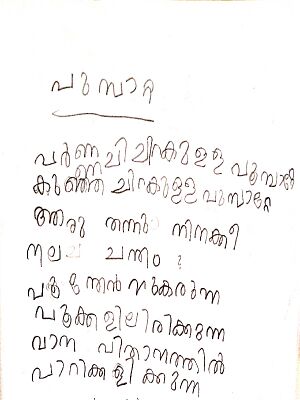 പൂമ്പാറ്റ
പർണ്ണചിചിറകുള്ള പൂമ്പാറ്റേ
കുഞ്ഞി ചിറകുള്ള പൂമ്പാറ്റേ
ആരു തന്നു നിനക്കീ
നല്ല ചന്തം ?
പൂന്തേൻ നുകരുന്ന
പൂക്കളിലിരിക്കുന്ന
വാന വിതാനത്തിൽ
പാറിക്കളിക്കുന്ന